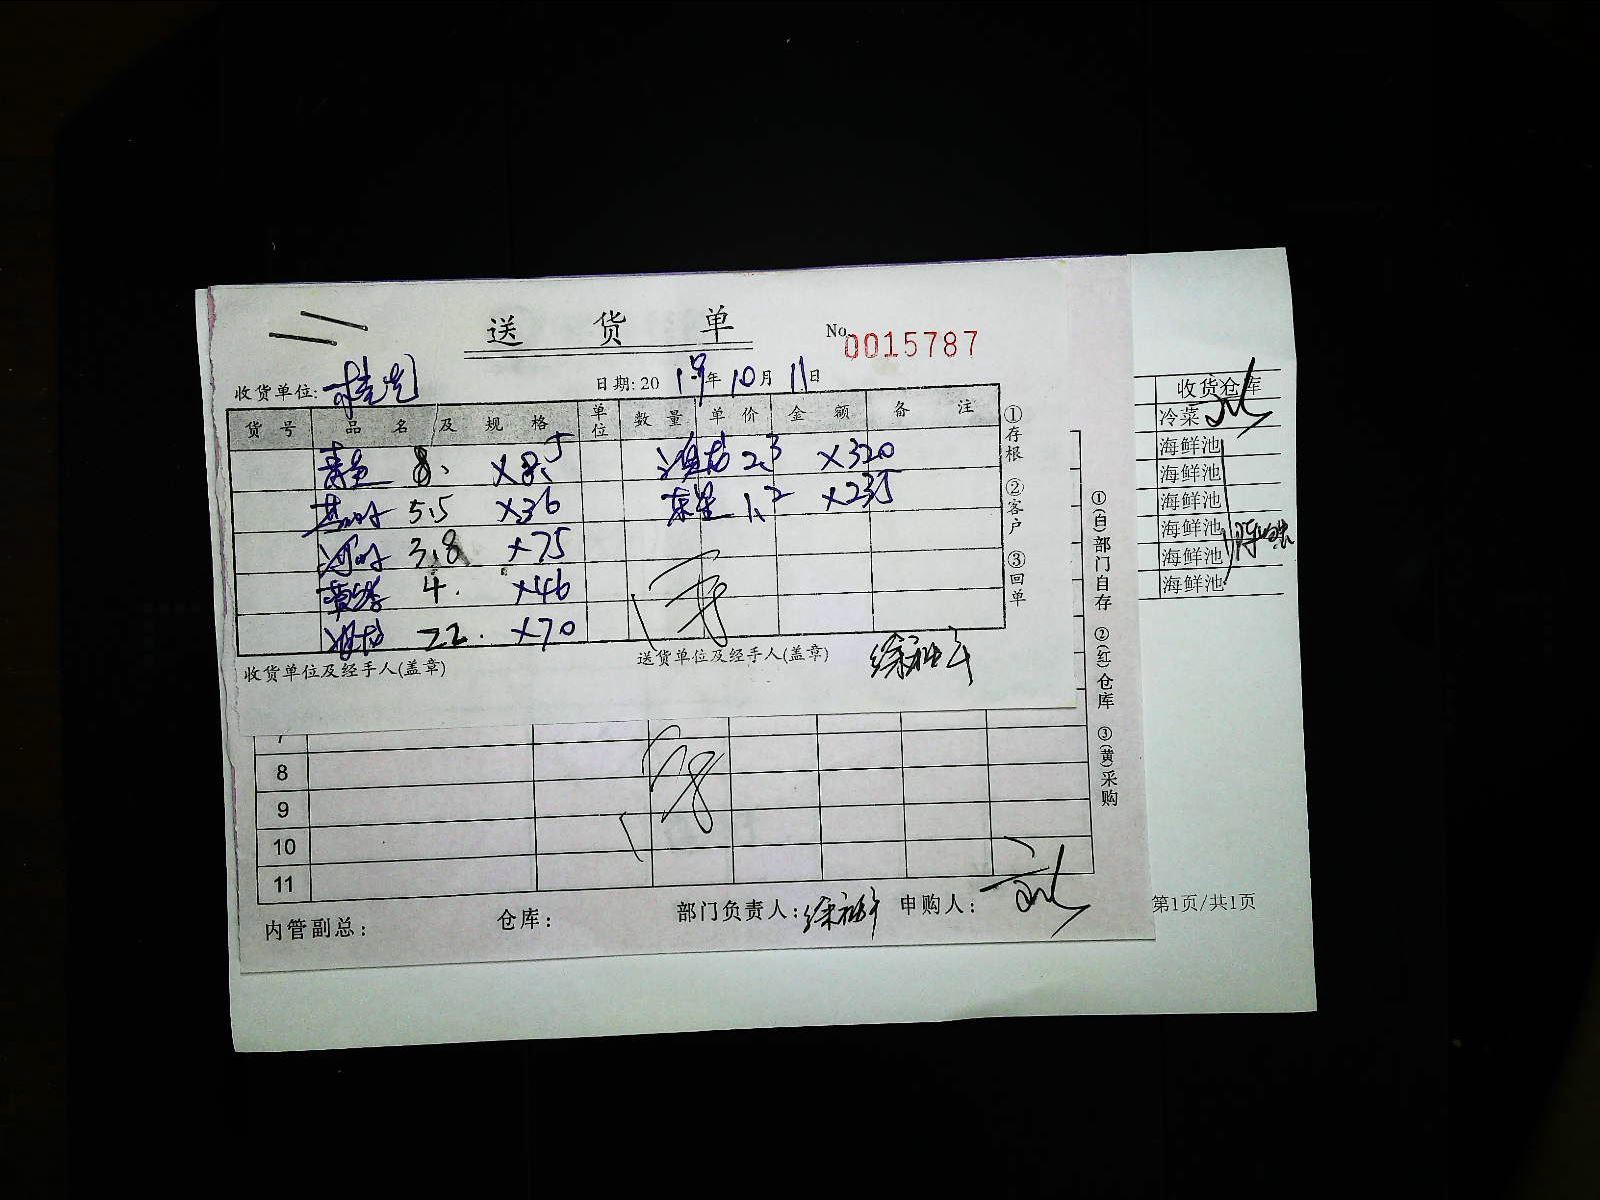 送 货 单
No. 0015787
收货单位:
日期: 20 19 年 10 月 11 日
货号 品名及规格 单位 数量 单价 金额 备注
8. ×8.5 2.3 ×320
5.5 ×36 东星 1.2 ×235
3.8 ×75
4. ×46
22. ×70
①存根 ②客户 ③回单
收货单位及经手人(盖章) 送货单位及经手人(盖章)
7
8
9
10
11
①(白)部门自存 ②(红)仓库 ③(黄)采购
内管副总: 仓库: 部门负责人: 申购人:
收货仓库
冷菜
海鲜池
海鲜池
海鲜池
海鲜池
海鲜池
海鲜池
第1页/共1页